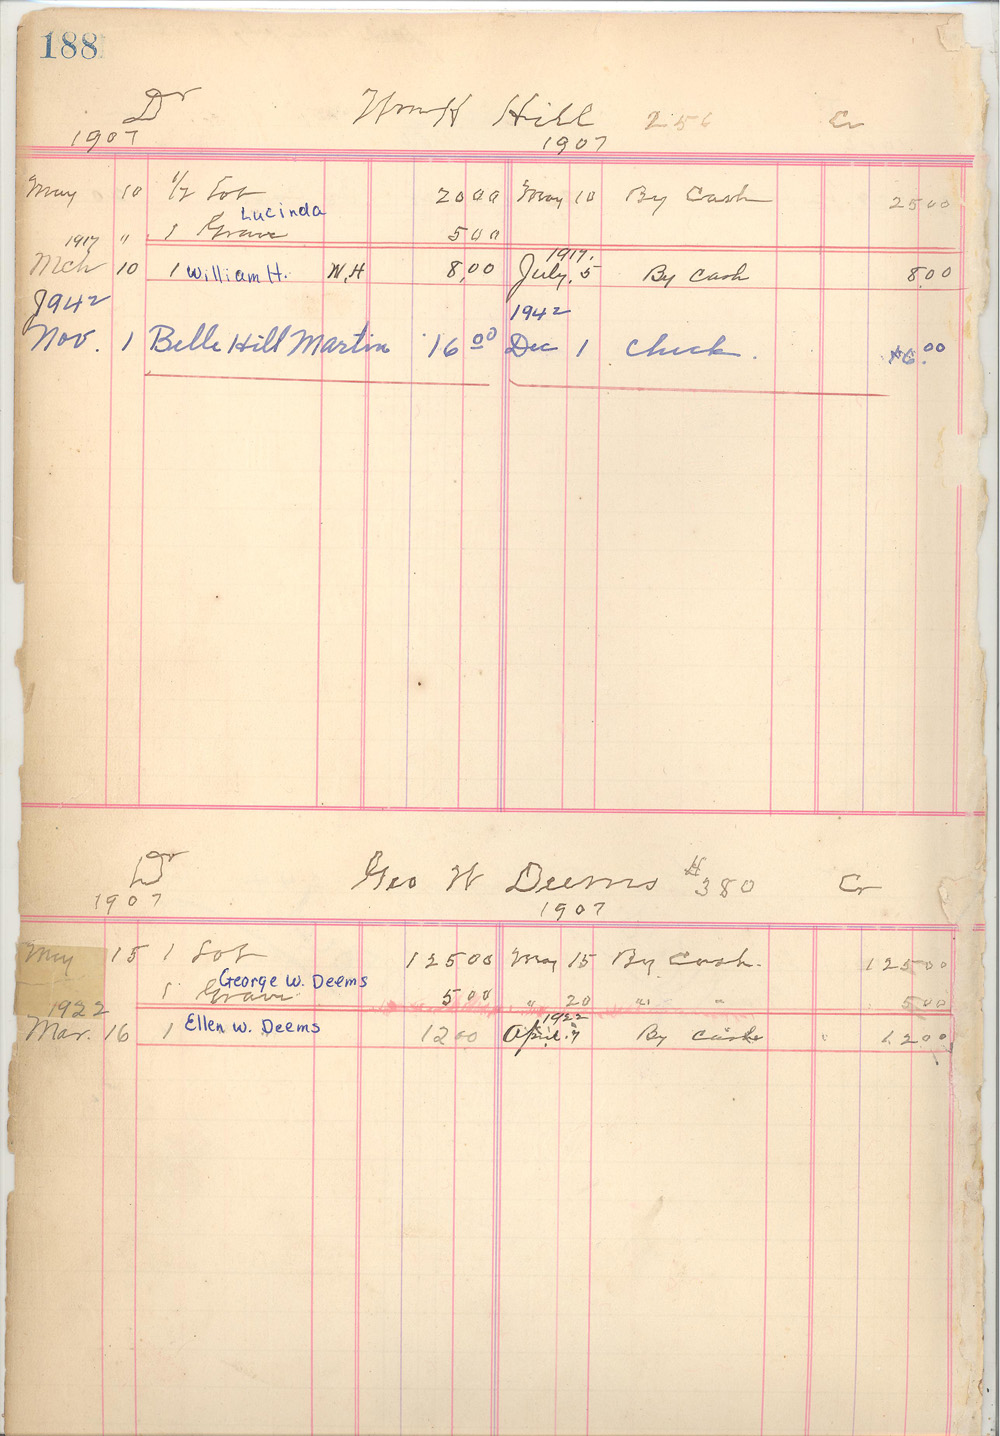 188
Dr Wm H Hill 256 Cr
1907 1907
May 10 1/2 Lot 20 00 May 10 By Cash 25 00
Lucinda
" 1 Grave 5 00
1917 1917.
Mch 10 1 William H. W.H 8,00 July. 5 By Cash 8.00
1942 1942
Nov. 1 Belle Hill Martin 16 00 Dec 1 Check. 16.00
Dr Geo W Deems # 380 Cr
1907 1907
May 15 1 Lot 125 00 May 15 By Cash. 125 00
George W. Deems
1 Grave 5 00 " 20 " " 5 00
1922 1922
Mar. 16 1 Ellen W. Deems 12 00 April. 7 By Cash 12 00